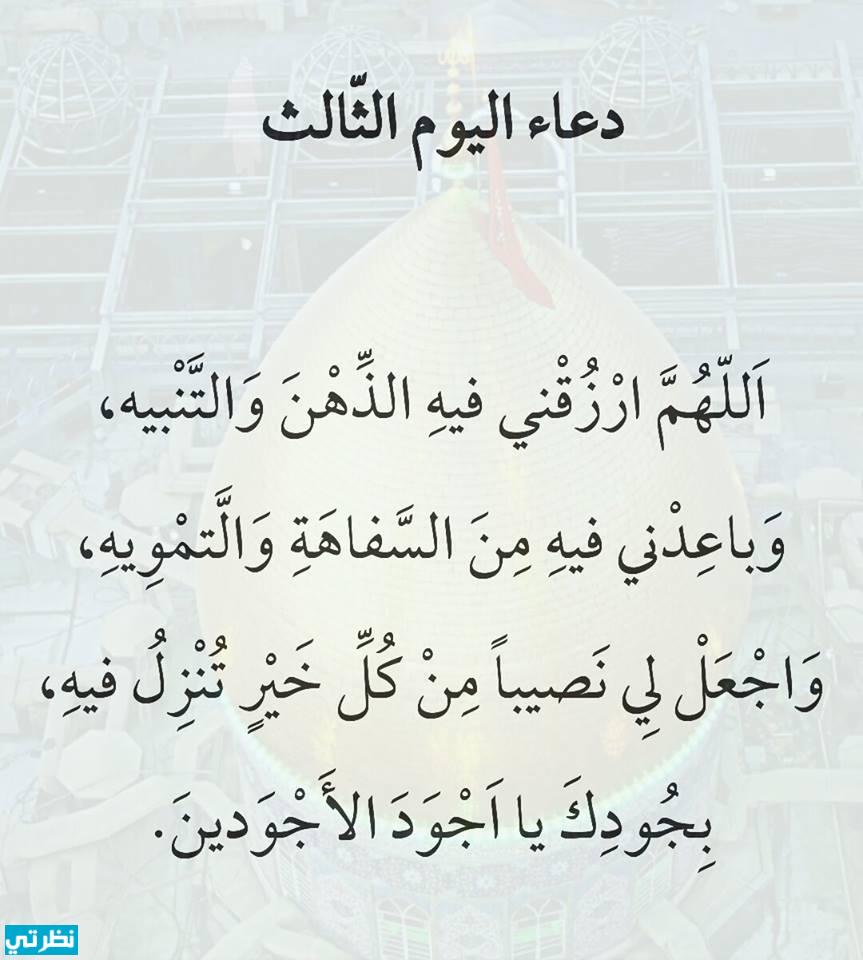 دعاء اليوم الثّالث
اَللّهُمَّ ارْزُقْني فيهِ الذِّهْنَ وَالتَّنْبيه،
وَباعِدْني فيهِ مِنَ السَّفاهَةِ وَالَّتمْوِيهِ،
وَاجْعَلْ لِي نَصيباً مِنْ كُلِّ خَيْرٍ تُنْزِلُ فيهِ،
بِجُودِكَ يا اَجْوَدَ الأَجْوَدينَ.
نظرتي